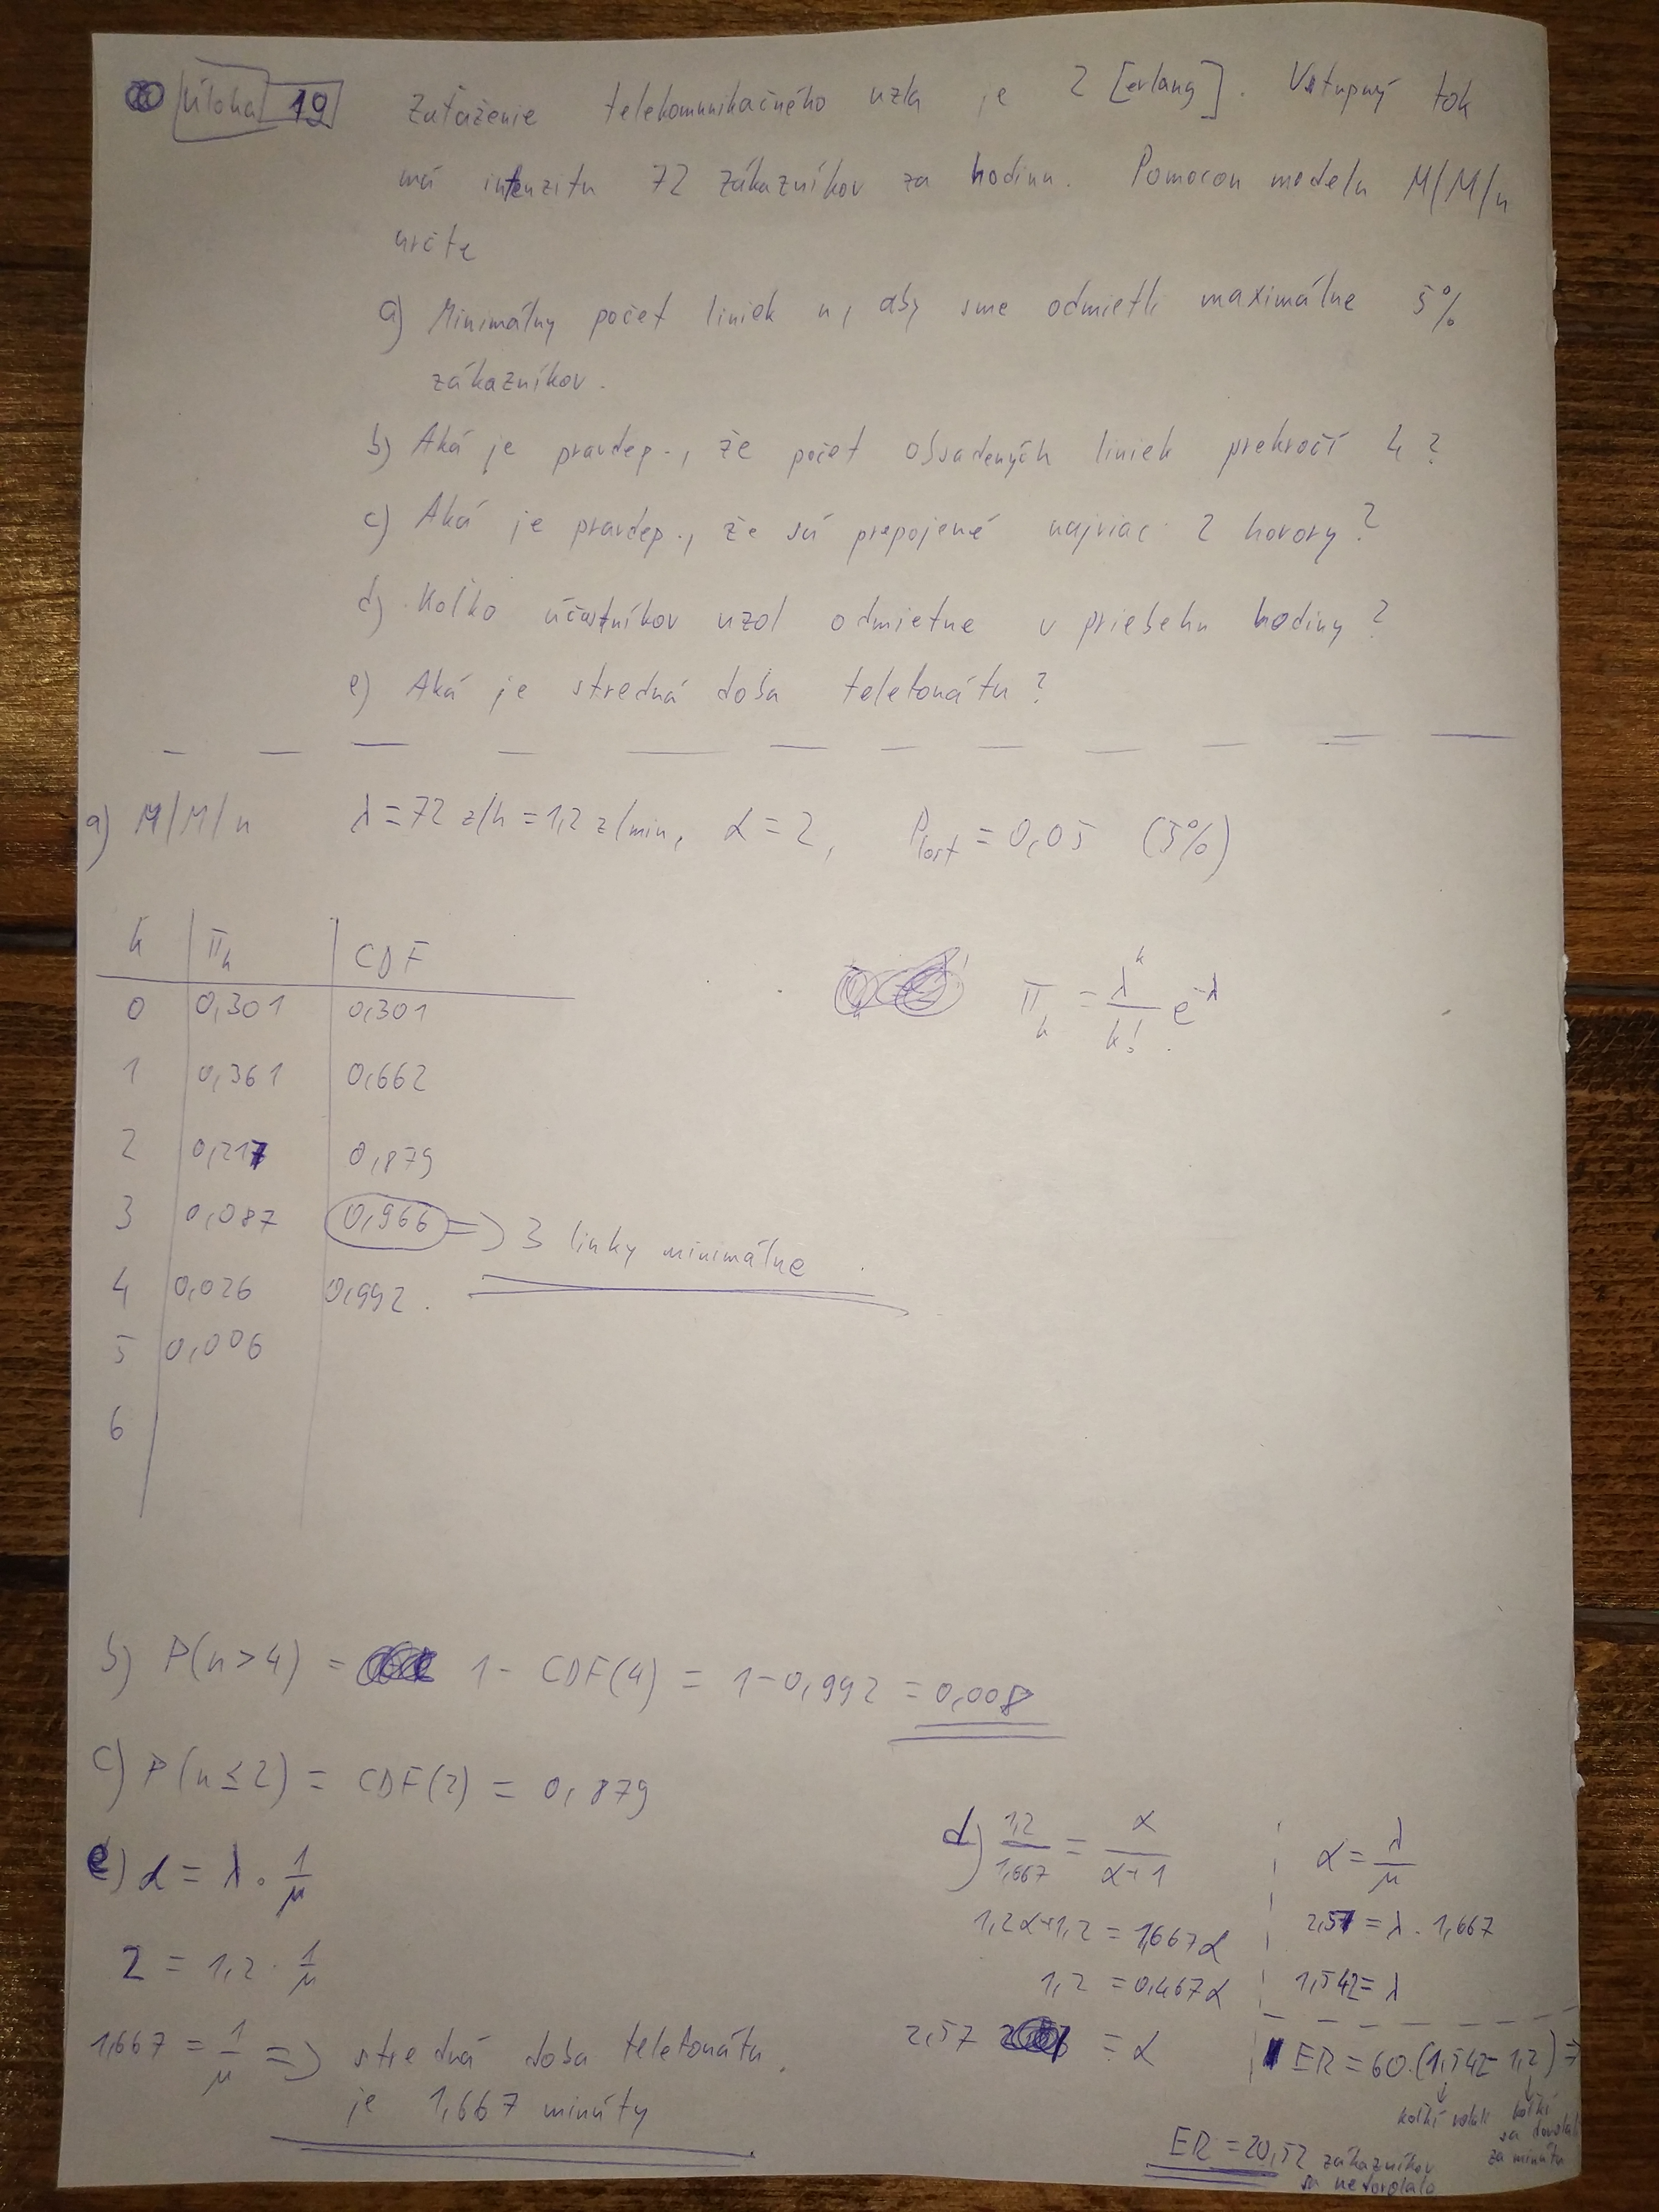 Úloha 19 Zaťaženie telekomunikačného uzla je 2 [erlang]. Vstupný tok
má intenzitu 72 zákazníkov za hodinu. Pomocou modelu M/M/n
určte
a) Minimálny počet liniek n, aby sme odmietli maximálne 5%
zákazníkov.
b) Aká je pravdep., že počet obsadených liniek prekročí 4?
c) Aká je pravdep., že sú prepojené najviac 2 hovory?
d) Koľko účastníkov uzol odmietne v priebehu hodiny?
e) Aká je stredná doba telefonátu?
a) M/M/n λ = 72 z/h = 1,2 z/min, α = 2, Plost = 0,05 (5%)
k πk CDF
πk = λ^k / k! e^-λ
0 0,301 0,301
1 0,361 0,662
2 0,217 0,879
3 0,087 0,966 => 3 linky minimálne
4 0,026 0,992.
5 0,006
6
b) P(n>4) = 1 - CDF(4) = 1-0,992 = 0,008
c) P(n≤2) = CDF(2) = 0,879
e) α = λ · 1/μ
2 = 1,2 · 1/μ
1,667 = 1/μ => stredná doba telefonátu
je 1,667 minúty
d) 1,2/1,667 = α/α+1
1,2α+1,2 = 1,667α
1,2 = 0,467α
2,57 = α
α = λ/μ
2,57 = λ · 1,667
1,542 = λ
ER = 60·(1,542-1,2) =>
koľkí volali koľkí
sa dovolali
za minútu
ER = 20,52 zákazníkov
sa nedovolalo